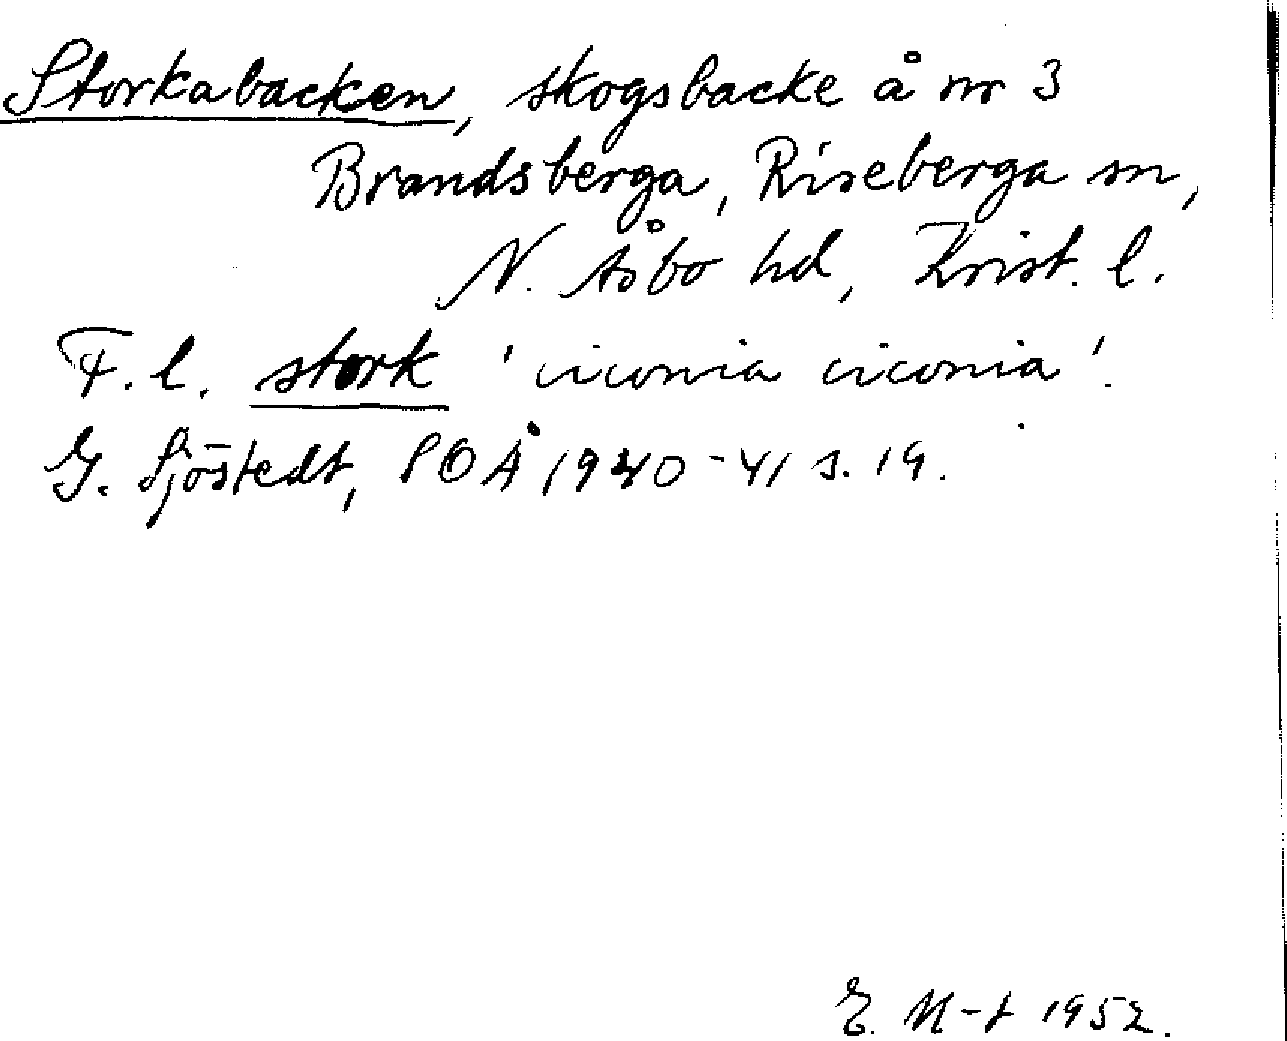 Storkabacken, skogsbacke å nr 3
Brandsberga, Riseberga sn,
N. Åsbo hd, Krist. l.
F. l. stork 'ciconia ciconia'.
G. Sjöstedt, SOÅ 1940-41 s. 19.
E. M-t 1952.